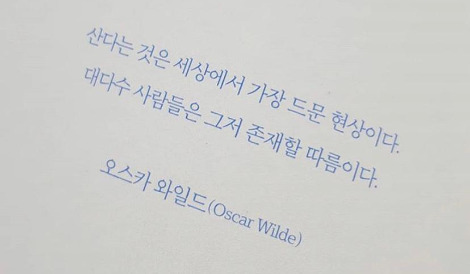 산다는 것은 세상에서 가장 드문 현상이다.
대다수 사람들은 그저 존재할 따름이다.
오스카 와일드(Oscar Wilde)